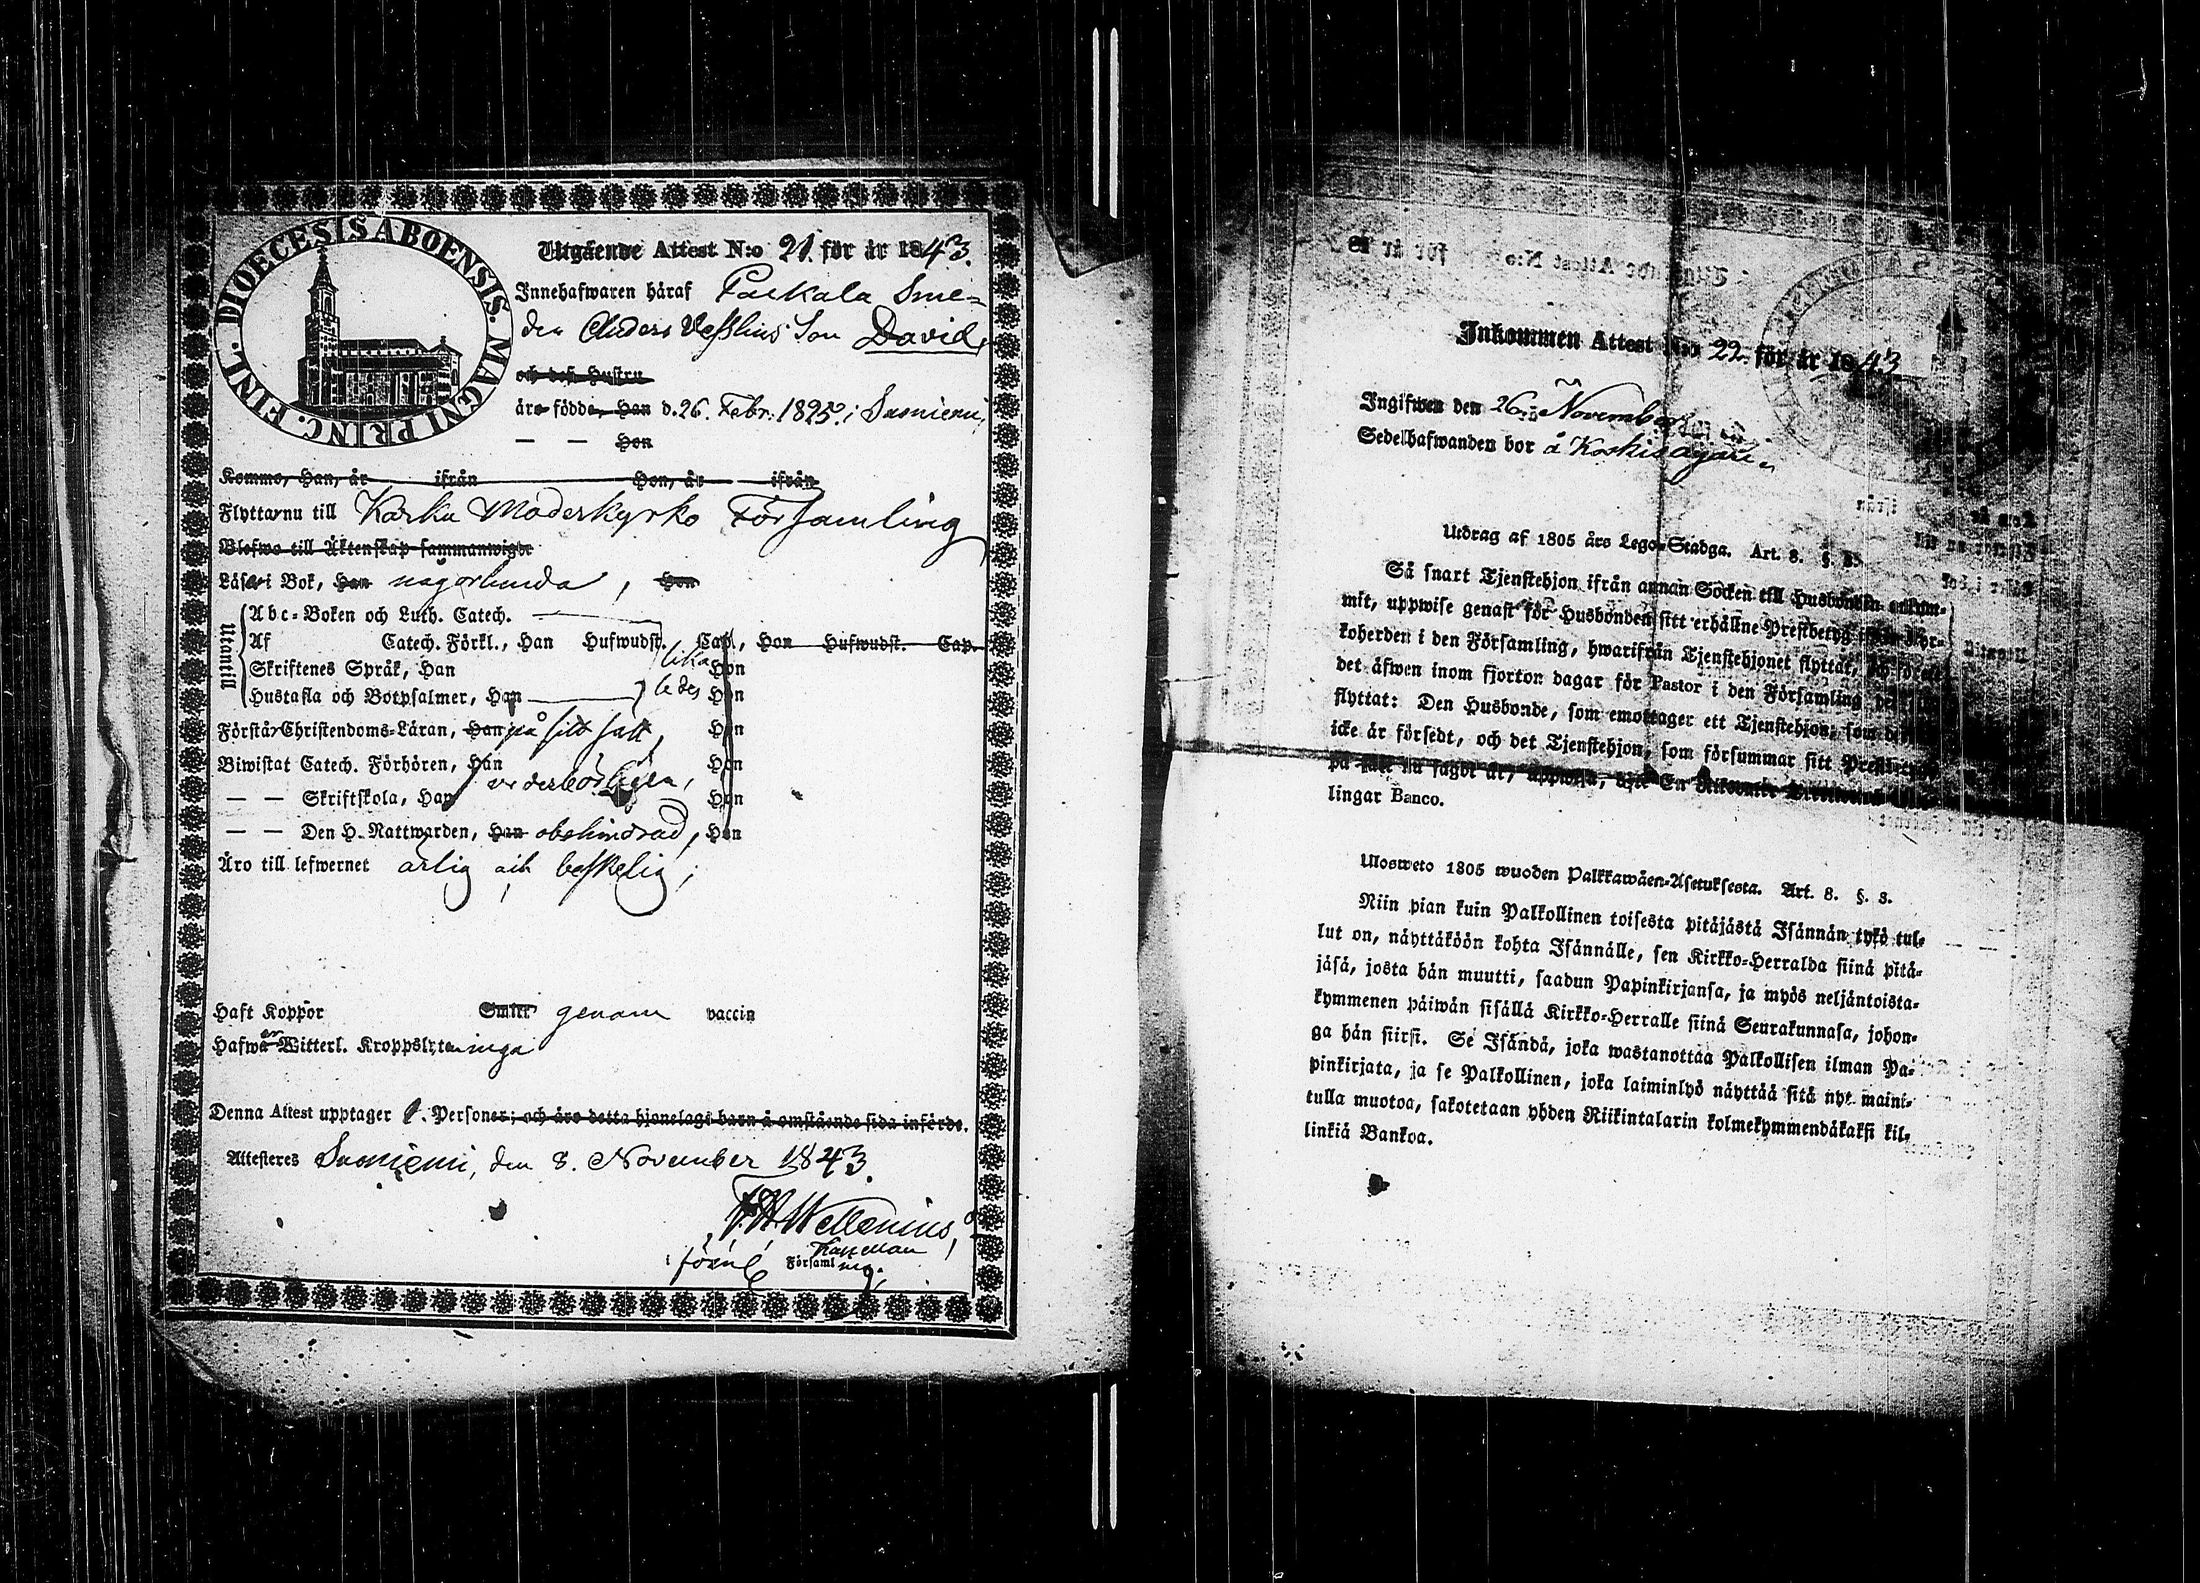 DIOECESIS ABOENSIS. MAGNI PRINC. FINL.
Utgående Attest N:o 21. för år 1843.
Innehafwaren häraf Smeden
Anders Son David,
och deß Hustru
äro födde, Han d. 26. Febr. 1825. i Suoniemi,
— — Hon
Kommo, Han, år ifrån Hon, år ifrån
Flytta nu till Karku Moderkyrko Församling
Blefwo till Äktenskap sammanwigde
Läsa i Bok, Han någorlunda, Hon
Utantill
Abc-Boken och Luth. Catech.
Af Catech. Förkl., Han Hufwudst. Cap., Hon Hufwudst. Cap.
Skriftenes Språk, Han lika Hon
Hustafla och Botpsalmer, Han ledes Hon
Förstår Christendoms-Läran, Han på sitt satt, Hon
Biwistat Catech. Förhören, Han Hon
— — Skriftskola, Han vederbörligen, Hon
— — Den H. Nattwarden, Han obehindrad, Hon
Äro till lefwernet ärlig och beskelig;
Haft Koppor Smitt genom vaccin
Hafwa Witterl. Kroppslyte inga
Denna Attest upptager 1. Personer; och äro detta hjonelags barn å omstående sida införde.
Attesteres Suoniemi, den 8. November 1843.
Wellenius,
Kapellan
i Församling.
Inkommen Attest N:o 22. för år 1843
Ingifwen den 26 November
Sedelhafwanden bor å
Utdrag af 1805 års Lego-Stadga. Art. 8. §. 3.
Så snart Tjenstehjon ifrån annan Socken till Husbonden ankom-
mit, uppwise genast för Husbonden sitt erhållne Prestbetyg ifrån Kyr-
koherden i den Församling, hwarifrån Tjenstehjonet flyttat, och
det äfwen inom fjorton dagar för Pastor i den Församling
flyttat: Den Husbonde, som emottager ett Tjenstehjon, som
icke är försedt, och det Tjenstehjon, som försummar sitt Prestbetyg
på sätt nu sagdt är, uppwisa, böte En Riksdaler
lingar Banco.
Ulosweto 1805 wuoden Palkkawäen-Asetuksesta. Art. 8. §. 3.
Niin pian kuin Palkollinen toisesta pitäjästä Isännän tykö tul-
lut on, näyttäköön kohta Isännälle, sen Kirkko-Herralda siinä pitä-
jäsä, josta hän muutti, saadun Papinkirjansa, ja myös neljäntoista-
kymmenen päiwän sisällä Kirkko-Herralle siinä Seurakunnasa, johon-
ga hän siirsi. Se Isändä, joka wastanottaa Palkollisen ilman Pa-
pinkirjata, ja se Palkollinen, joka laiminlyö näyttää sitä nyt maini-
tulla muotoa, sakotetaan yhden Riikintalarin kolmekymmendäkaksi kil-
linkiä Bankoa.